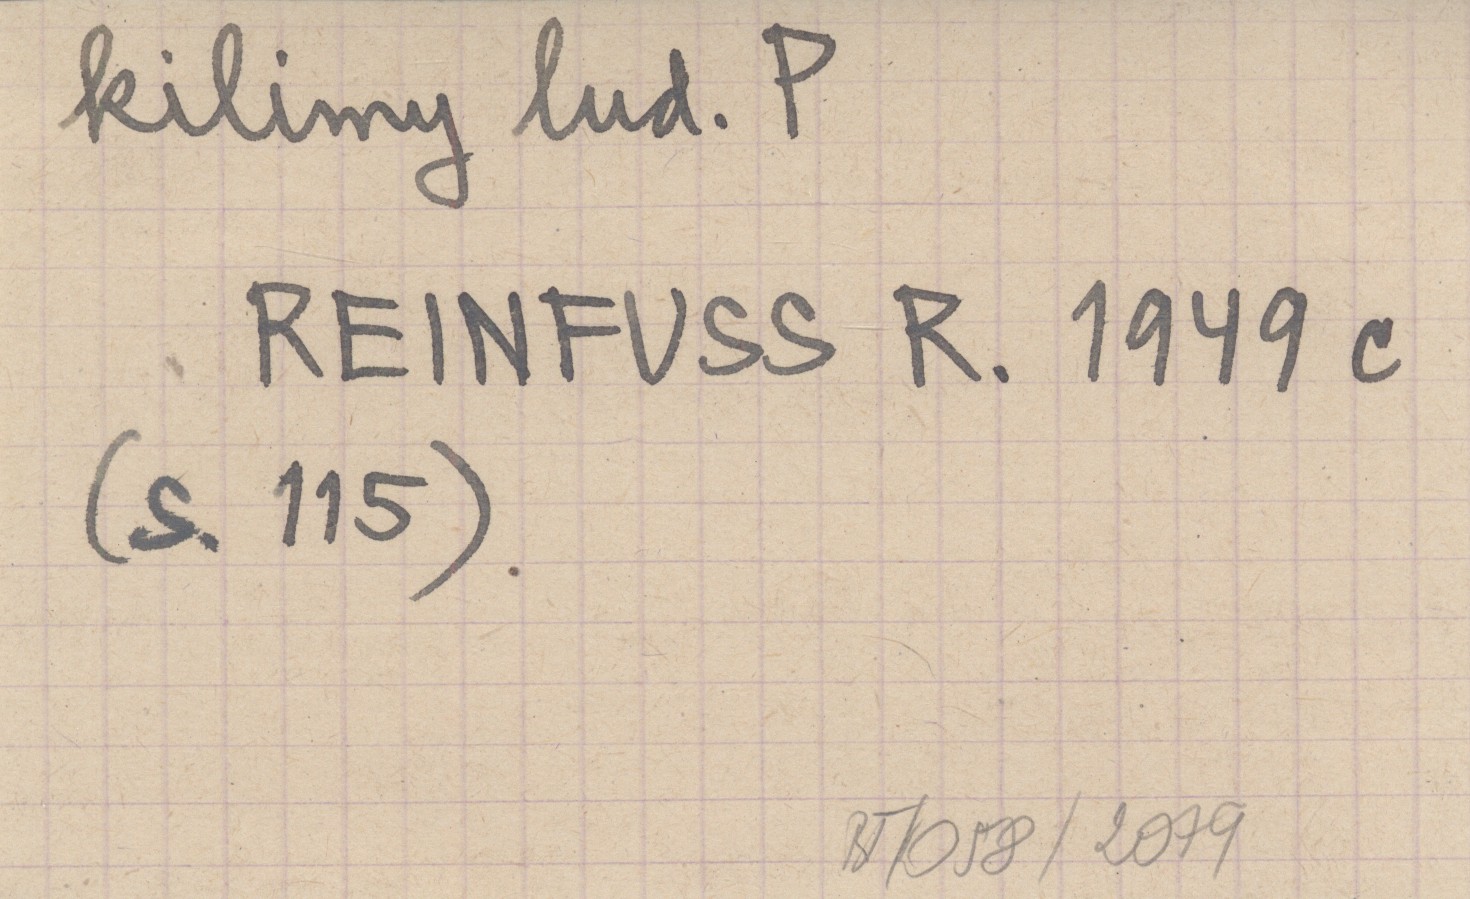 kilimy lud. P
REINFUSS R. 1949 c
(s. 115).
BT/058/2079